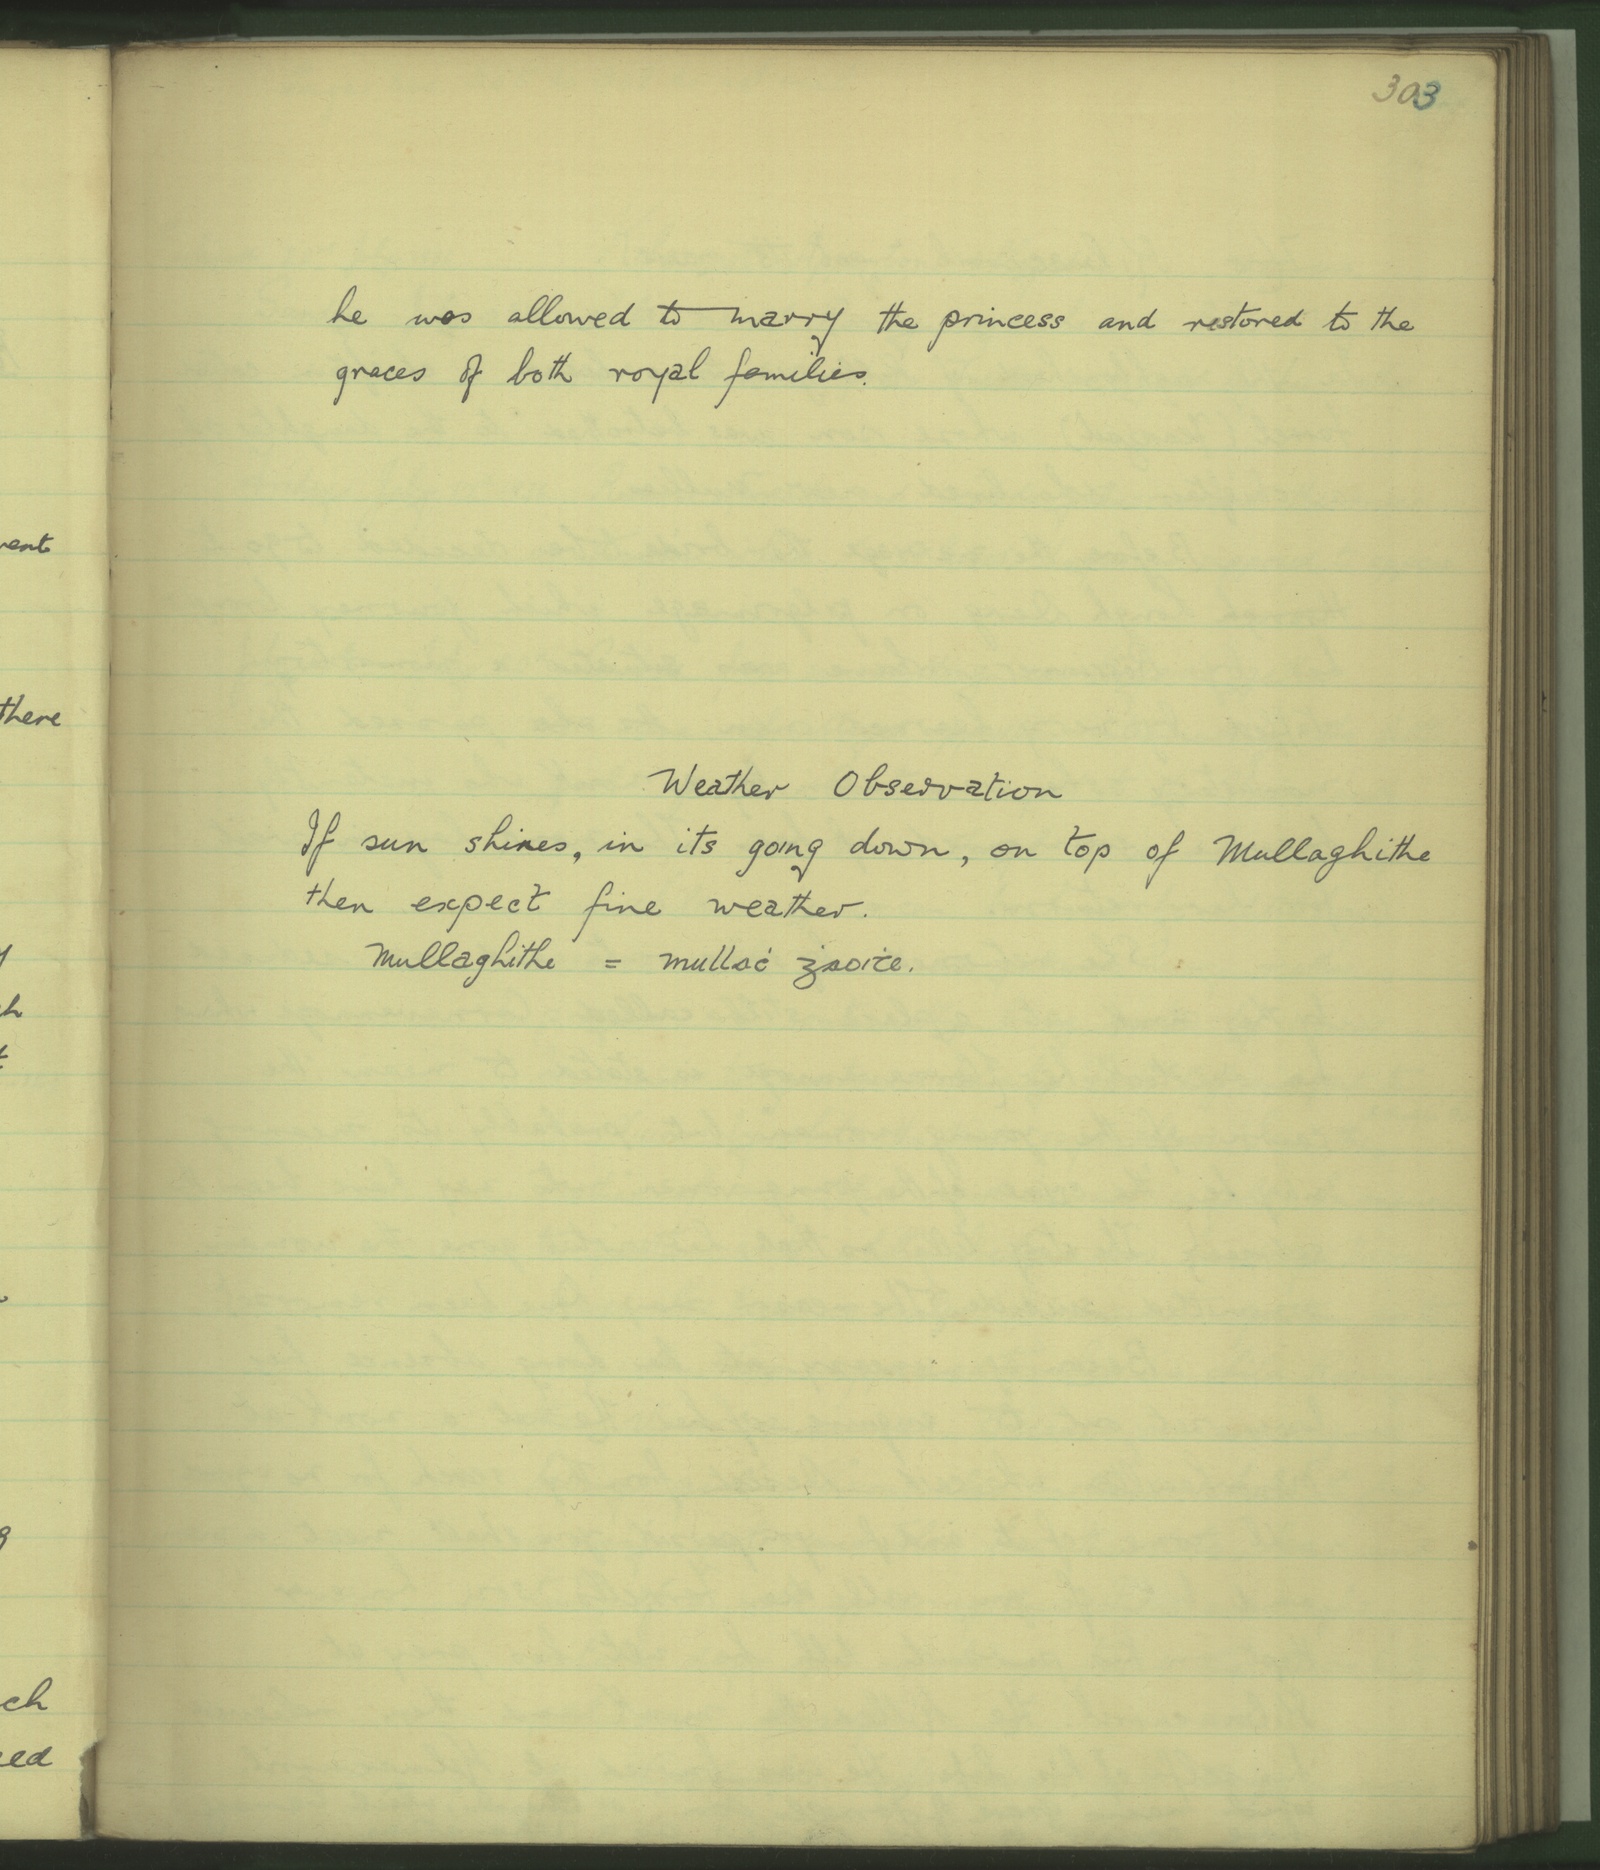 303
he was allowed to marry the princess and restored to the
graces of both royal families.
Weather Observation
If sun shines, in its going down, on top of Mullaghithe
then expect fine weather.
Mullaghithe = mullaċ ġaoiṫe.
vent
there
ch